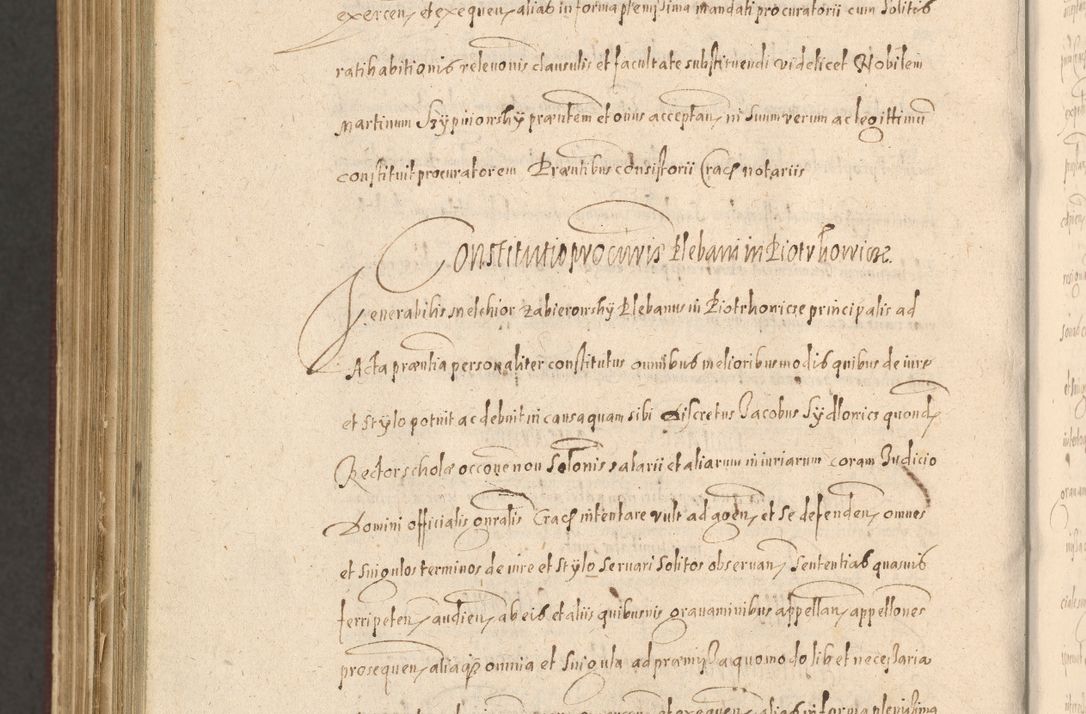 exercen, et exequen, alias in forma plenissima mandati procuratorii cum solitis
ratihabitionis relevonis clausulis et facultate substituendi videlicet Nobilem
Martinum Szypiiorsky præntem et onus acceptan, in suum verum ac legittimū
constituit procuratorem Præntibus consistorii Crac notariis
Constitutio procuris Plebani in Piotrkowicze
Venerabilis Melchior Zabierowsky Plebanus in Piotrkowicze principalis ad
Acta præntia personaliter constitutus omnibus melioribus modis quibus de iure
et stylo potuit ac debuit in causa quam sibi Discretus Jacobus Sydlowicz quond,
Rector scholæ occone non solonis salarii et aliarum iniuriarum coram Judicio
Domini officialis gnralis Crac intentare vult ad agen, et se defenden, omnes
et singulos terminos de iure et stylo servari solitos observan, sententias quasvis
ferri peten, audien, ab eis et aliis quibusvis gravaminibus appellan, appellones
prosequen, aliaqȝ omnia et singula ad præmissa quomodolibet necessaria
alias in forma plenissima